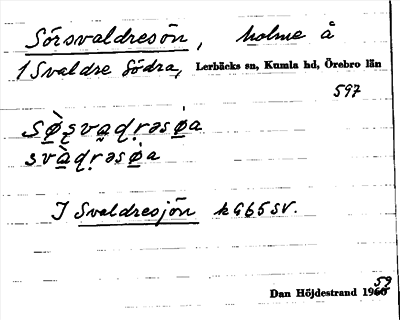 Sörsvaldresön, holme å
1 Svaldre Södra, Lerbäcks sn, Kumla hd, Örebro län
597
sø̀ṣvaḍrəsø̍a
svàḍrəsø̍a
I Svaldresjön k G65 SV.
Dan Höjdestrand 1960 59